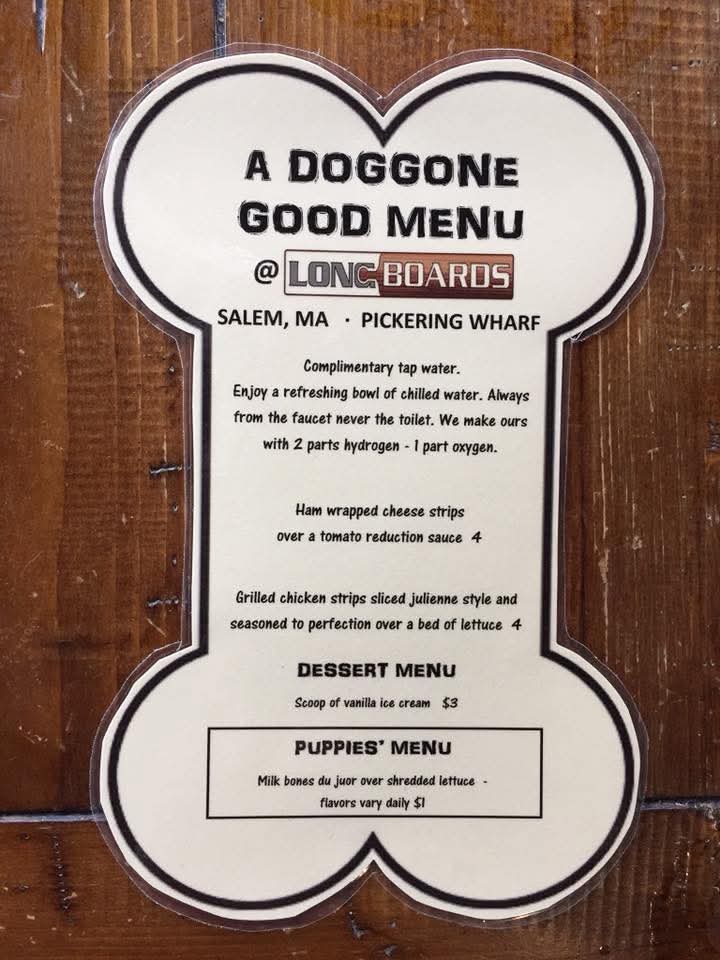 A DOGGONE
GOOD MENU
@ LONGBOARDS
SALEM, MA · PICKERING WHARF
Complimentary tap water.
Enjoy a refreshing bowl of chilled water. Always
from the faucet never the toilet. We make ours
with 2 parts hydrogen - 1 part oxygen.
Ham wrapped cheese strips
over a tomato reduction sauce 4
Grilled chicken strips sliced julienne style and
seasoned to perfection over a bed of lettuce 4
DESSERT MENU
Scoop of vanilla ice cream $3
PUPPIES' MENU
Milk bones du juor over shredded lettuce -
flavors vary daily $1